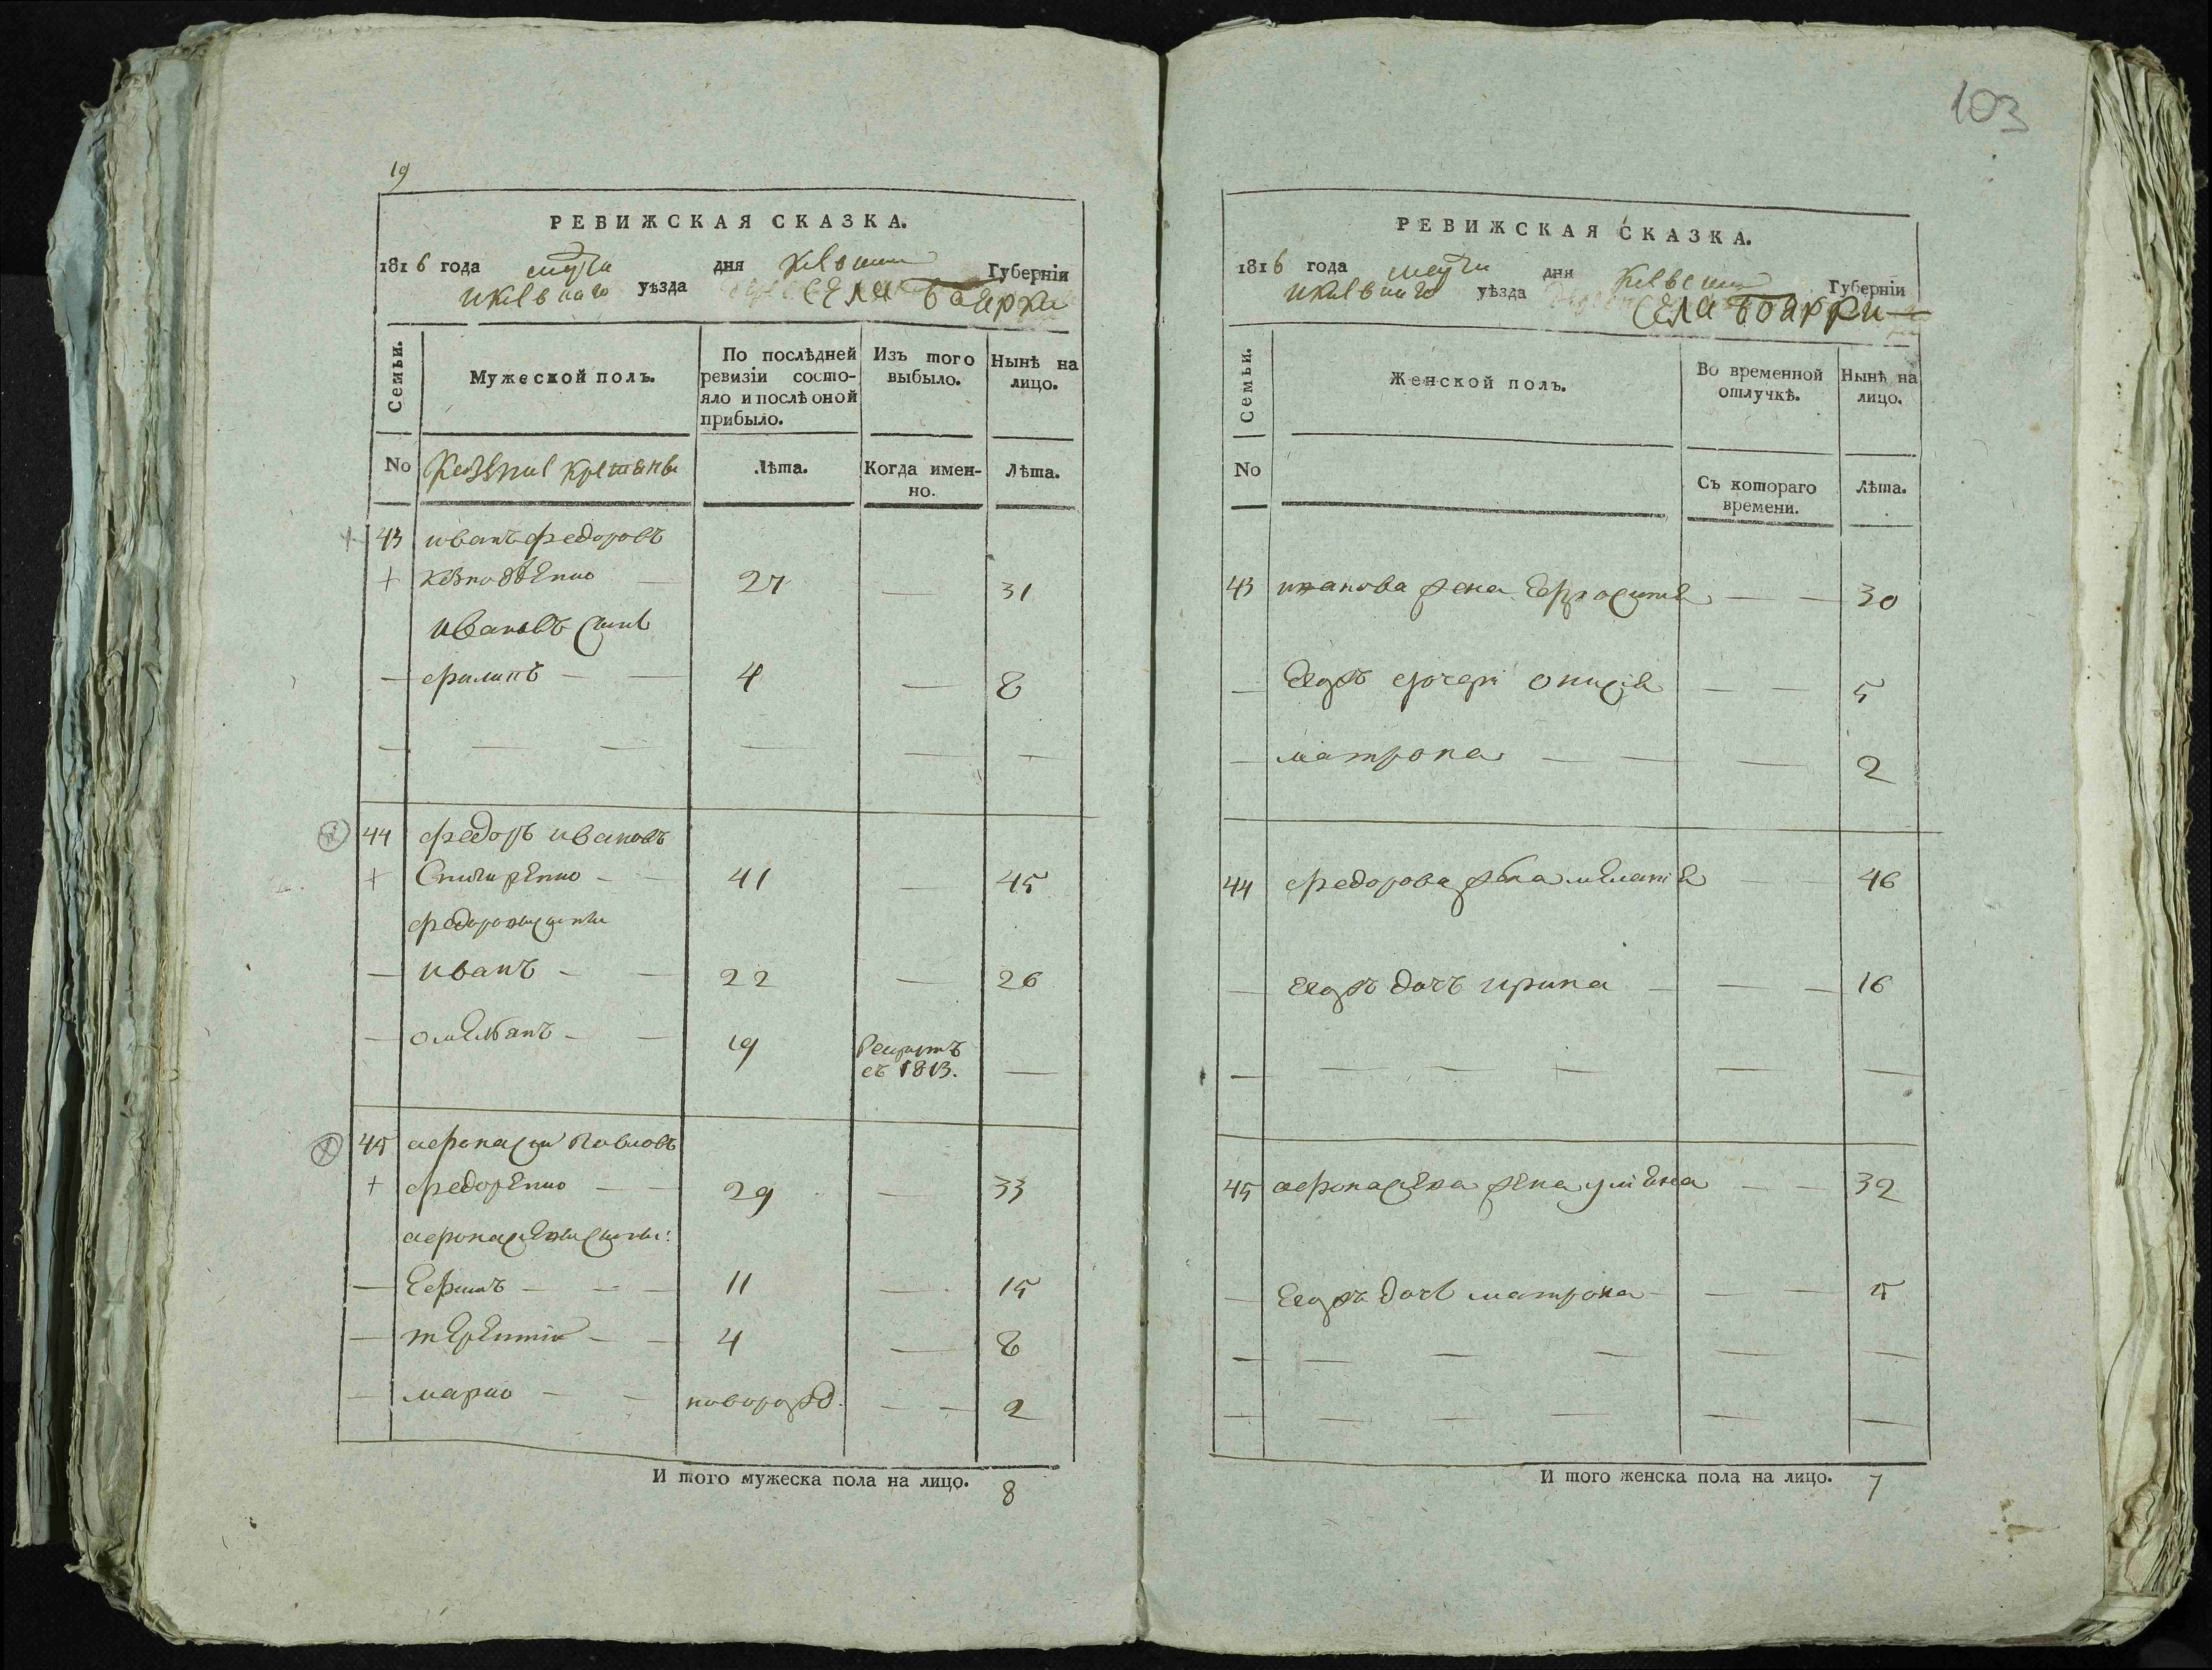 19
РЕВИЖСКАЯ СКАЗКА.
1816 года дня Киевской Губерніи
уѣзда села Боярки
Семьи.
Мужеской полъ.
По послѣдней ревизіи состо-
яло и послѣ оной
прибыло.
Изъ того
выбыло.
Нынѣ на
лицо.
No
Казенніе крестяны
Лѣта.
Когда имен-
но.
Лѣта.
43 иванъ федоровъ
27 — 31
Ивановъ синъ
— филипъ — — 4 — 8
44 федоръ ивановъ
41 — 45
федорови сини
— иванъ — — 22 — 26
— омельянъ — — 19 Рекрутъ
съ 1813. —
45 афонасии Павловъ
федоренко — — 29 — 33
афонасиеви сини:
— Ефимъ — — — 11 — 15
— терентій — — 4 — 8
— марко — — новорожд. — — 2
И того мужеска пола на лицо. 8
103
РЕВИЖСКАЯ СКАЗКА.
1816 года дня Киевской Губерніи
уѣзда села Боярки
Семьи.
Женской полъ.
Во временной
отлучкѣ.
Нынѣ на
лицо.
No
Съ котораго
времени.
Лѣта.
43 иванова жена Ефросинія — — 30
— Егожъ дочери онисія — — 5
— матрона — — — 2
44 федорова жена меланія — — 46
— Егожъ дочъ ирина — — — 16
45 афонасиева жена уліяна — — 32
— Егожъ дочь матрона — — — 5
И того женска пола на лицо. 7